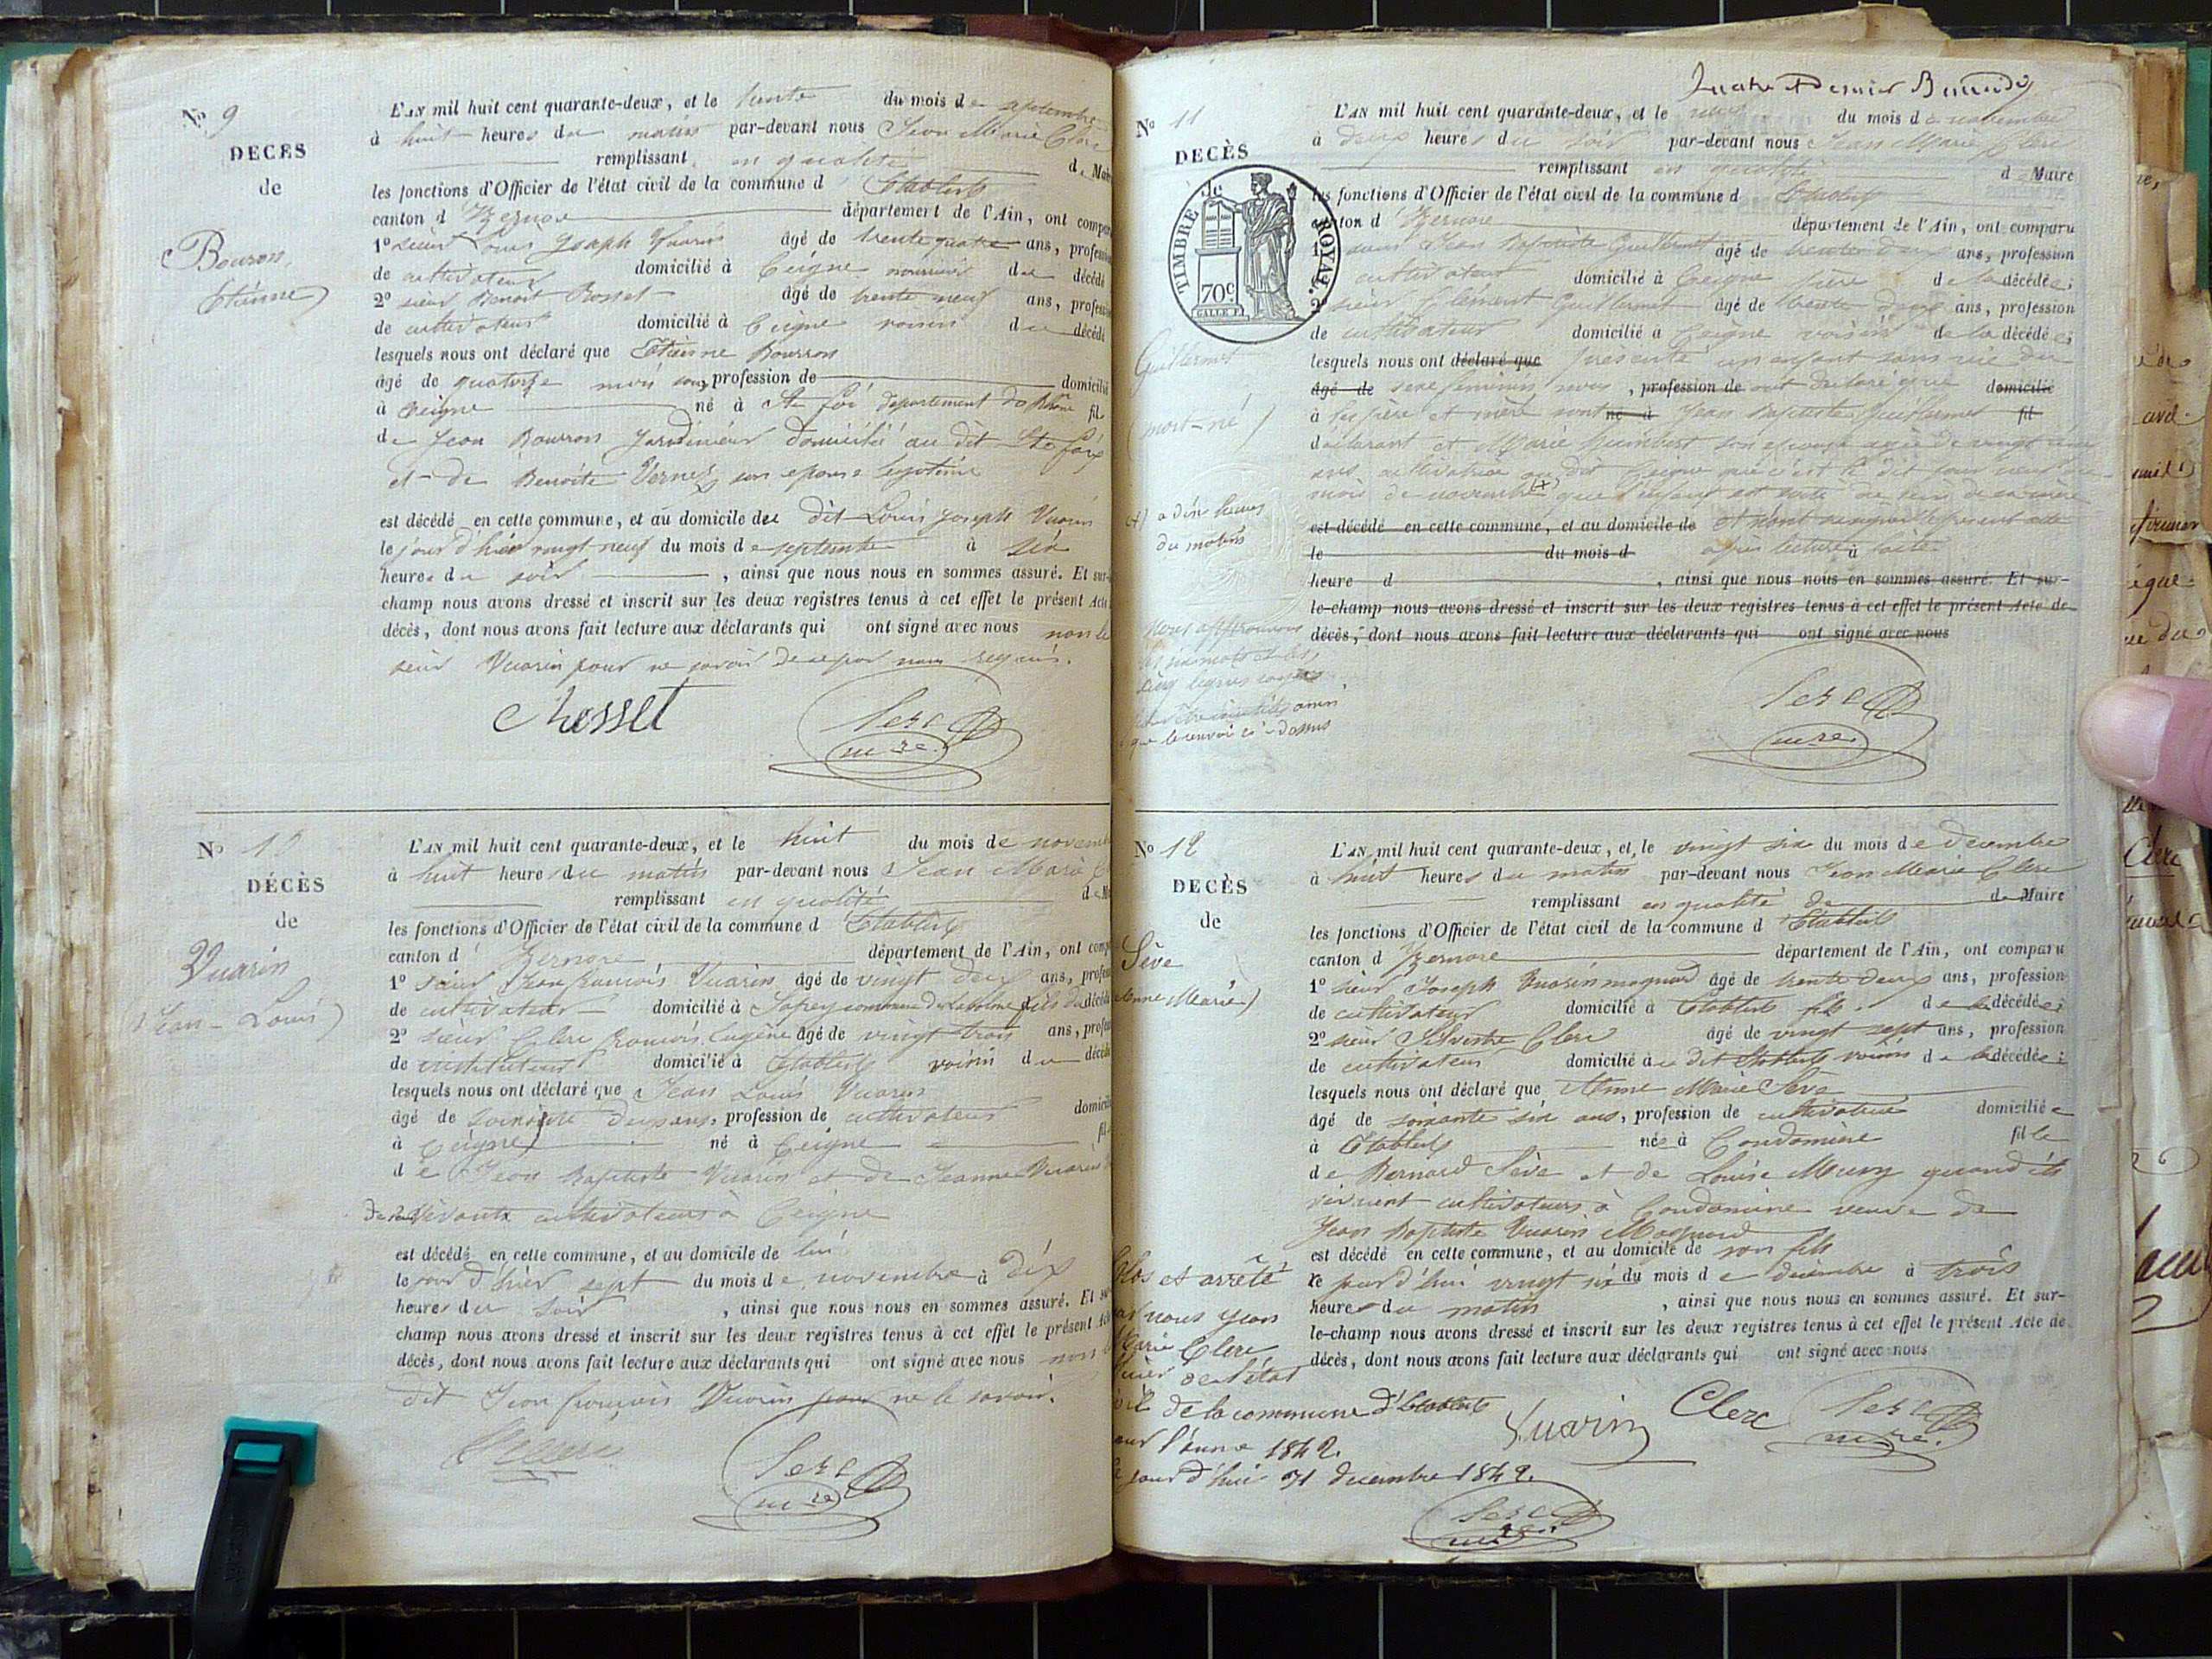 No 9
DECES
de
Bouron
Etienne)
L'AN mil huit cent quarante-deux, et le trente du mois de septembre
à huit heures du matin par-devant nous Jean Marie Clerc
remplissant en qualité de Mai
les fonctions d'Officier de l'état civil de la commune d Etables
canton d'Izernore département de l'Ain, ont compa
1° sieur Louis Joseph Vuarin âgé de trente quatre ans, profession
de cultivateur domicilié à Ceigne nourricier du décédé
2° sieur Benoit Rosset âgé de trente neuf ans, profession
de cultivateur domicilié à Ceigne voisin du décédé
lesquels nous ont déclaré que Etienne Bourron
âgé de quatorze mois profession de domicilié
à Ceigne né à Ste foi département du Rhône fils
de Jean Bourron Jardinier domicilié au dit Ste foix
et de Benoite Vernez son epouse legitime
est décédé en cette commune, et au domicile de dit Louis Joseph Vuarin
le jour d'hier vingt neuf du mois de septembre à six
heures du soir , ainsi que nous nous en sommes assuré. Et sur-
champ nous avons dressé et inscrit sur les deux registres tenus à cet effet le présent Acte
décès, dont nous avons fait lecture aux déclarants qui ont signé avec nous non le
sieur Vuarin pour ne savoir de ce par nous requis.
Rosset
Clerc
mre.
No 10
DÉCÈS
de
Vuarin
(Jean-Louis)
L'AN mil huit cent quarante-deux, et le huit du mois de novem
à huit heures du matin par-devant nous Jean Marie C
remplissant en qualité de M
les fonctions d'Officier de l'état civil de la commune d Etables
canton d'Izernore département de l'Ain, ont comp
1° sieur Jean francois Vuarin âgé de vingt deux ans, profess
de cultivateur domicilié à commune de fils du décédé
2° sieur Clerc francois Eugène âgé de vingt trois ans, profes
de instituteur domicilié à Etables voisin du décédé
lesquels nous ont déclaré que Jean Louis Vuarin
âgé de soixante deux ans, profession de cultivateur domicili
à Ceigne né à Ceigne fil
de Jean Baptiste Vuarin et de Jeanne Vuarin
de leur vivants cultivateurs à Ceigne
est décédé en cette commune, et au domicile de lui
le jour d'hier sept du mois de novembre à dix
heures du soir , ainsi que nous nous en sommes assuré. Et su
champ nous avons dressé et inscrit sur les deux registres tenus à cet effet le présent Acte
décès, dont nous avons fait lecture aux déclarants qui ont signé avec nous non le
dit Jean françois Vuarin pour ne le savoir.
Clerc
Clerc
mre
No 11
DECÈS
de
TIMBRE ROYAL
70c
Guillermet
(mort-né)
L'AN mil huit cent quarante-deux, et le neuf du mois de novembre
à deux heures du soir par-devant nous Jean Marie Clerc
remplissant en qualité d Maire
les fonctions d'Officier de l'état civil de la commune d Etables
canton d'Izernore département de l'Ain, ont comparu
1° sieur Jean Baptiste Guillermet âgé de trente deux ans, profession
cultivateur domicilié à Ceigne père de la décédée;
2° sieur Clément Guillermet âgé de trente deux ans, profession
de cultivateur domicilié à Ceigne voisin de la décédée;
lesquels nous ont déclaré que présenté un enfant sans vie du
âgé de sexe feminin nous , profession de ont déclaré que domicilié
à ses père et mère sont né à Jean Baptiste Guillermet fil
déclarant et Marie Humbert son epouse agée de vingt
ans cultivatrice au dit Ceigne que c'est le dit jour neuf du
mois de novembre (+) que l'enfant est sorti du sein de sa mère
(+) a dix heures
du matin
est décédé en cette commune, et au domicile de et n'ont le present acte
le du mois d après lecture à faite
heure d , ainsi que nous nous en sommes assuré. Et sur-
le-champ nous avons dressé et inscrit sur les deux registres tenus à cet effet le présent Acte de
décès, dont nous avons fait lecture aux déclarants qui ont signé avec nous
Nous approuvons
les six mots et les
cinq lignes rayés
ainsi
que le renvoi ci-dessus
Clerc
mre.
No 12
DECÈS
de
Sève
(Anne Marie)
L'AN mil huit cent quarante-deux, et le vingt six du mois de decembre
à huit heures du matin par-devant nous Jean Marie Clerc
remplissant en qualité de de Maire
les fonctions d'Officier de l'état civil de la commune d Etables
canton d'Izernore département de l'Ain, ont comparu
1° sieur Joseph Vuarin magnard âgé de trente deux ans, profession
de cultivateur domicilié à Etables fils de la décédée;
2° sieur Silvestre Clerc âgé de vingt sept ans, profession
de cultivateur domicilié au dit Etables voisin de la décédée;
lesquels nous ont déclaré que Anne Marie Sève
âgé de soixante six ans, profession de cultivatrice domiciliée
à Etables née à Condamine fille
de Bernard Sève et de Louise Muny quand ils
vivaient cultivateurs à Condamine veuve de
Jean Baptiste Vuarin Magnard
est décédé en cette commune, et au domicile de son fils
le jour d'hui vingt six du mois de decembre à trois
heures du matin , ainsi que nous nous en sommes assuré. Et sur-
le-champ nous avons dressé et inscrit sur les deux registres tenus à cet effet le présent Acte de
décès, dont nous avons fait lecture aux déclarants qui ont signé avec nous
Vuarin Clerc Clerc
mre.
Clos et arrêté
par nous Jean
Marie Clerc
officier de l'état
civil de la commune d'Etables
pour l'année 1842.
le jour d'hui 31 decembre 1842.
Clerc
mre